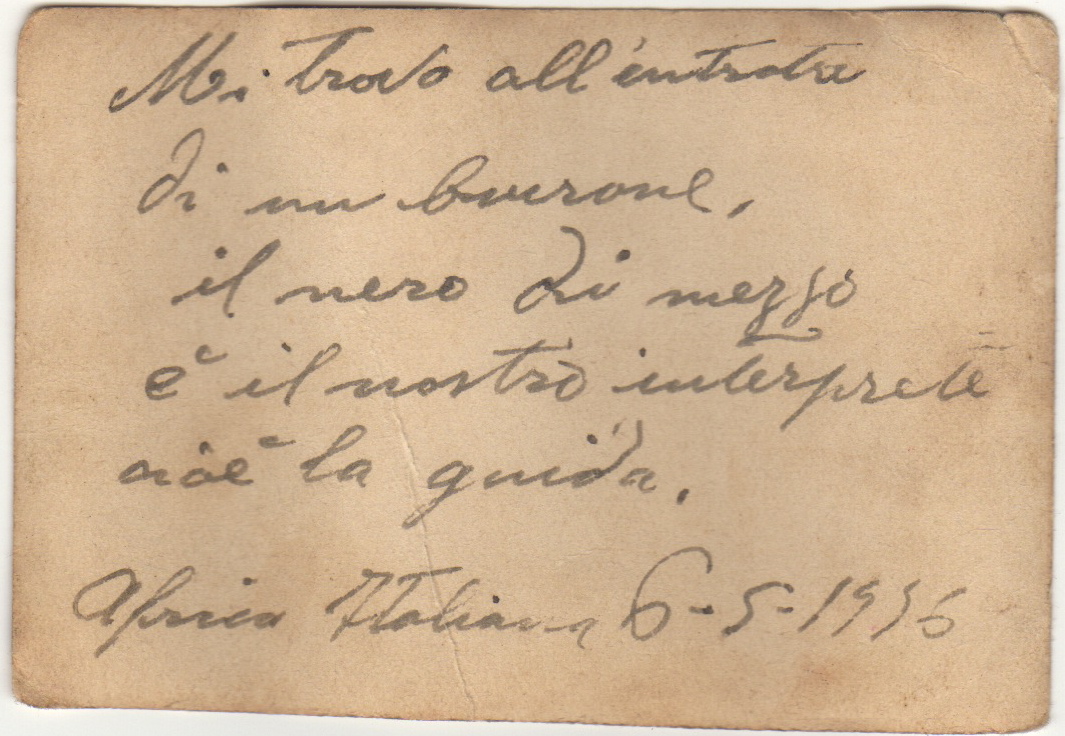 Mi trovo all'entrata
di un burrone,
il nero di mezzo
è il nostro interprete
cioè la guida.
Africa Italiana 6-5-1936